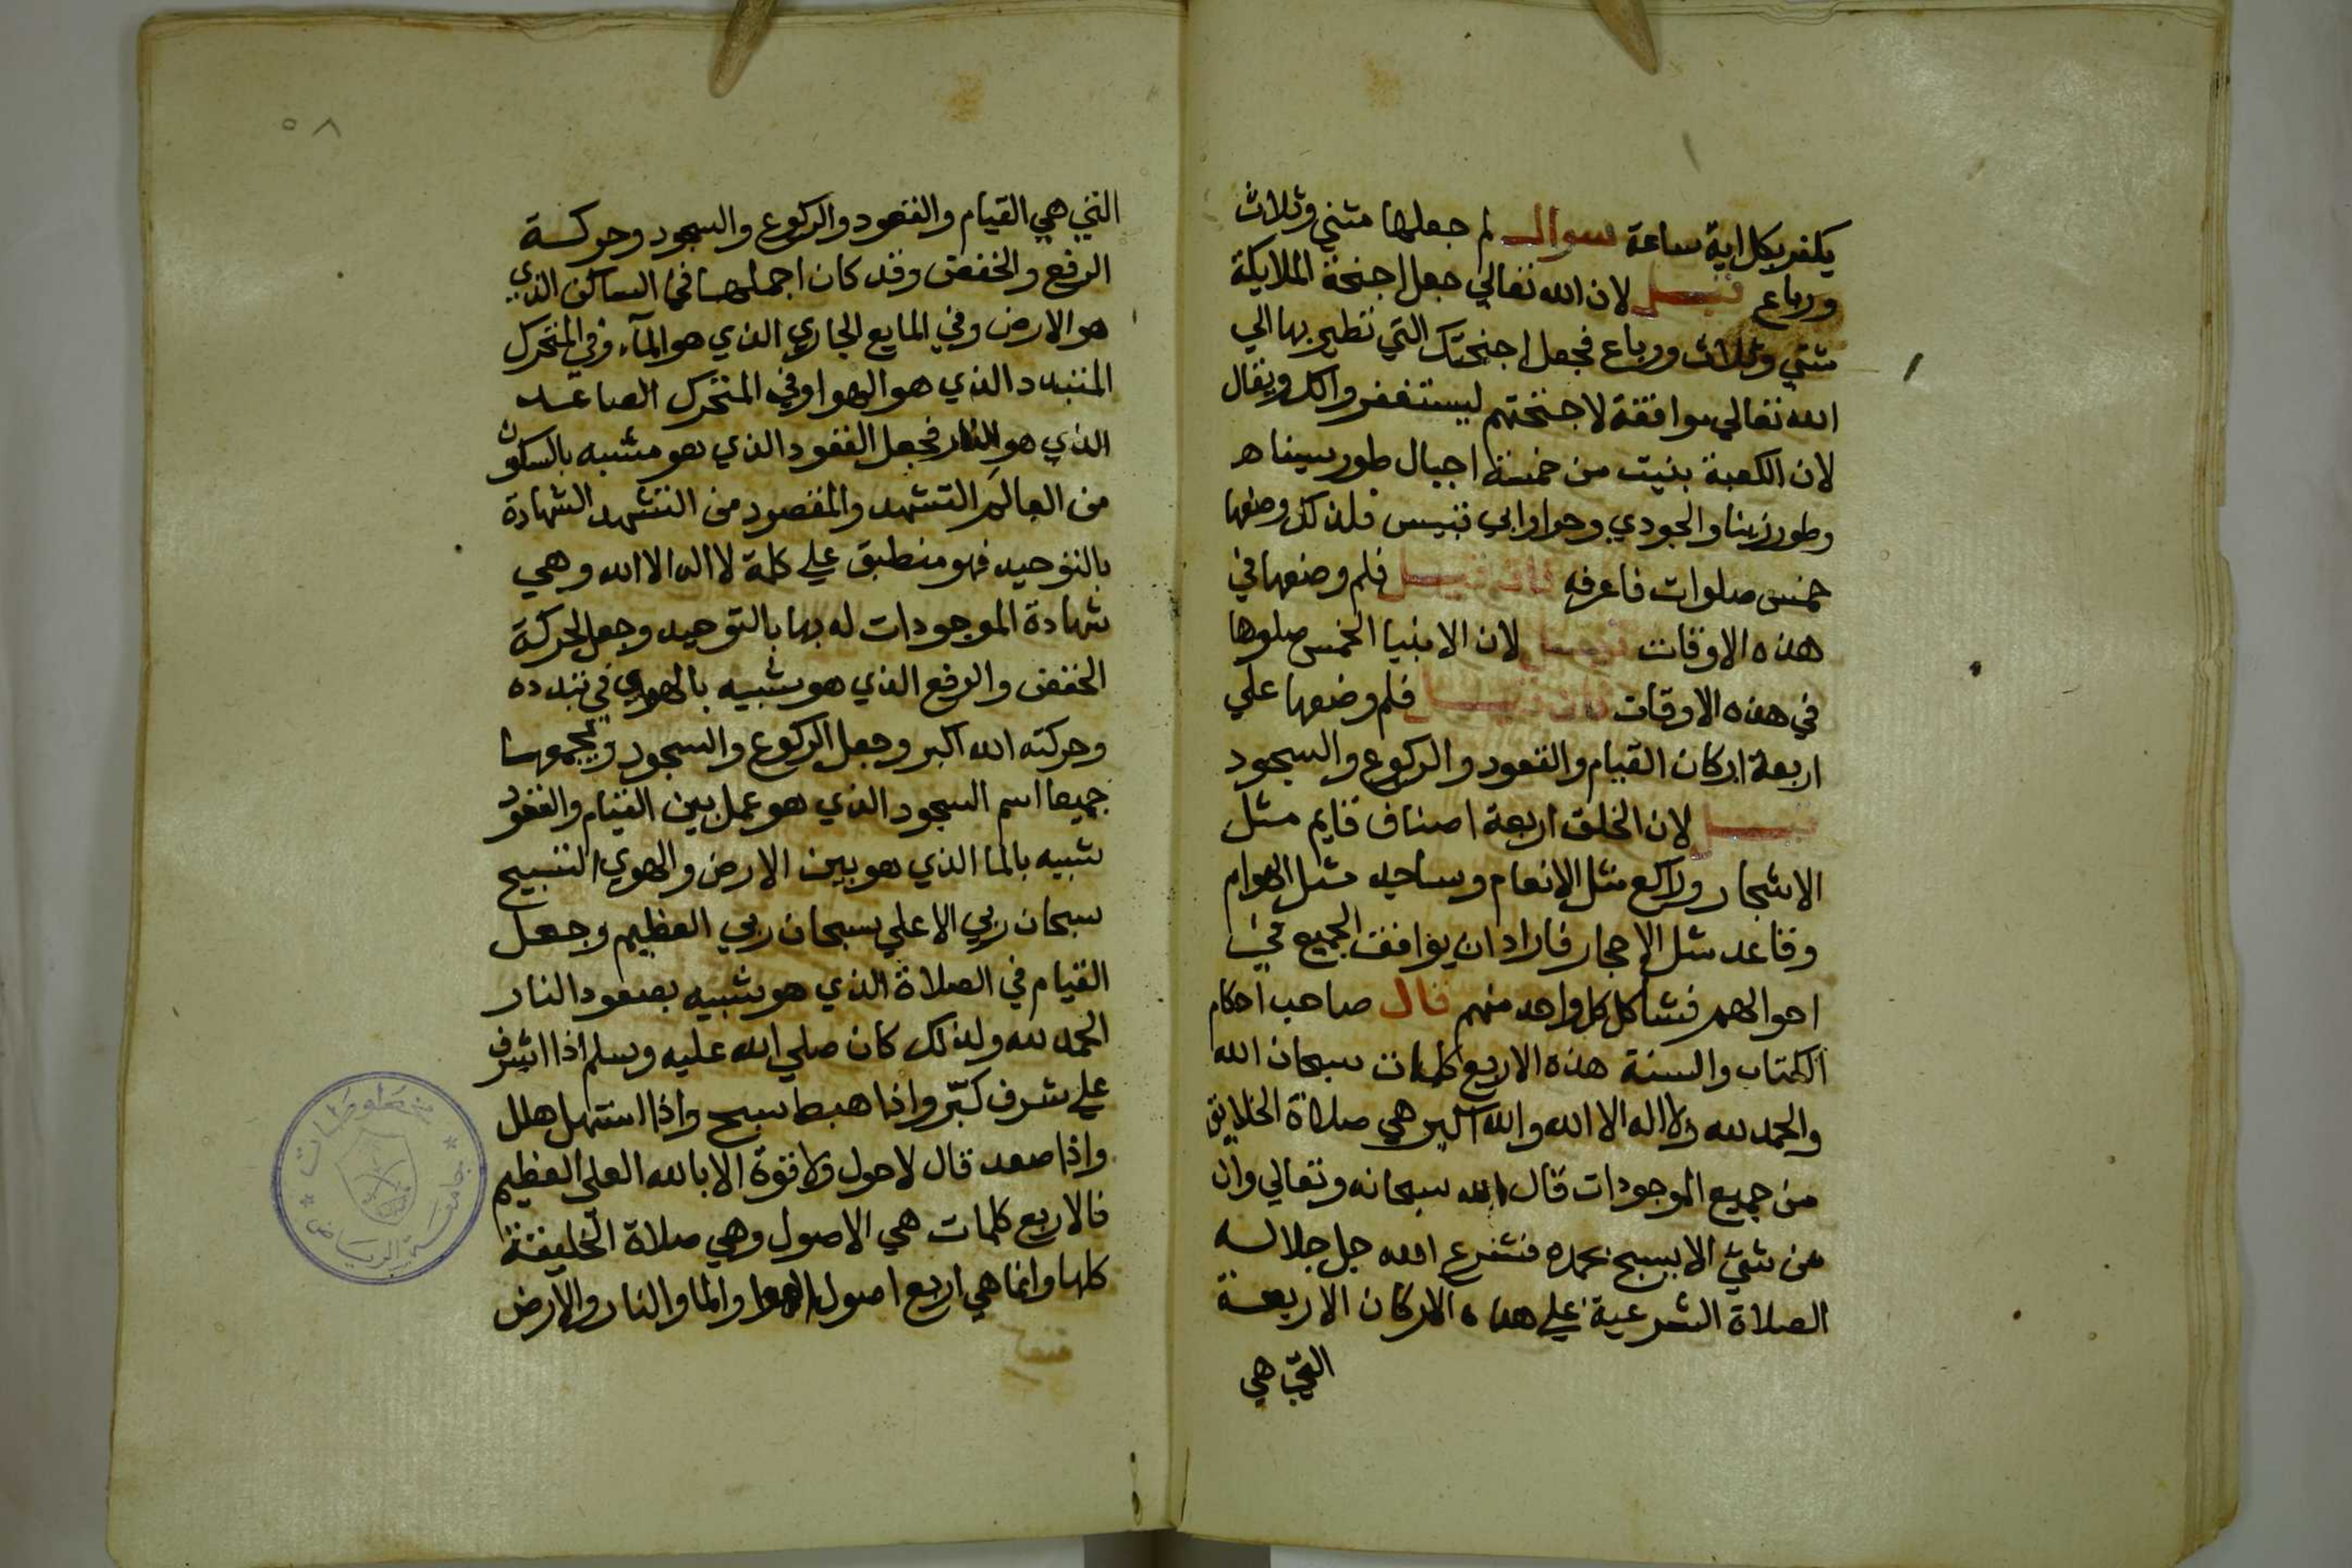 يكفر بكل اية ساعة سوال لم جعلها مثني وثلاث
ورباع قيل لان الله تعالي جعل اجنحة الملايكة
مثني وثلاث ورباع فجعل اجنحتك التي تطير بها الي
الله تعالي موافقة لاجنحتهم ليستغفروا لك ويقال
لان الكعبة بنيت من خمسة اجبال طور سيناه
وطور زيتا والجودي وحرا وابي قبيس فلذلك وضعها
خمس صلوات فاعرفه فان قيل فلم وضعها في
هذه الاوقات قيل لان الانبيا الخمس صلوها
في هذه الاوقات فان قيل فلم وضعها علي
اربعة اركان القيام والقعود والركوع والسجود
قيل لان الخلق اربعة اصناف قايم مثل
الاشجار وراكع مثل الانعام وساجد مثل الهوام
وقاعد مثل الاحجار فاراد ان يوافق الجميع في
احوالهم فشاكل كل واحد منهم قال صاحب احكام
الكتاب والسنة هذه الاربع كلمات سبحان الله
والحمد لله ولا اله الا الله والله اكبر هي صلاة الخلايق
من جميع الموجودات قال الله سبحانه وتعالي وان
من شي الا يسبح بحمده فشرع الله جل جلاله
الصلاة الشرعية علي هذه الاركان الاربعة
التي هي
٥٨
التي هي القيام والقعود والركوع والسجود وحركة
الرفع والخفض وقد كان اجملها في الساكن الذي
هو الارض وفي المايع الجاري الذي هو المآء وفي المتحرك
المتبدد الذي هو الهوا وفي المتحرك الصاعد
الذي هو النار فجعل القعود الذي هو مشبه بالسكون
من العالم التشهد والمقصود من التشهد الشهادة
بالتوحيد فهو منطبق علي كلمة لا اله الا الله وهي
شهادة الموجودات له بها بالتوحيد وجعل الحركة
الخفض والرفع الذي هو شبيه بالهوي في تبدده
وحركته الله اكبر وجعل الركوع والسجود ويجمعهما
جميعا اسم السجود الذي هو عمل بين القيام والقعود
شبيه بالما الذي هو بين الارض والهوي التسبيح
سبحان ربي الاعلي سبحان ربي العظيم وجعل
القيام في الصلاة الذي هو شبيه بصعود النار
الحمد لله ولذلك كان صلي الله عليه وسلم اذا اشرف
علي شرف كبّر واذا هبط سبح واذا استهل هلل
واذا صعد قال لا حول ولا قوة الا بالله العلي العظيم
فالاربع كلمات هي الاصول وهي صلاة الخليقة
كلها وانما هي اربع اصول الهوا والما والنار والارض
مخطوطات
جامعة الرياض